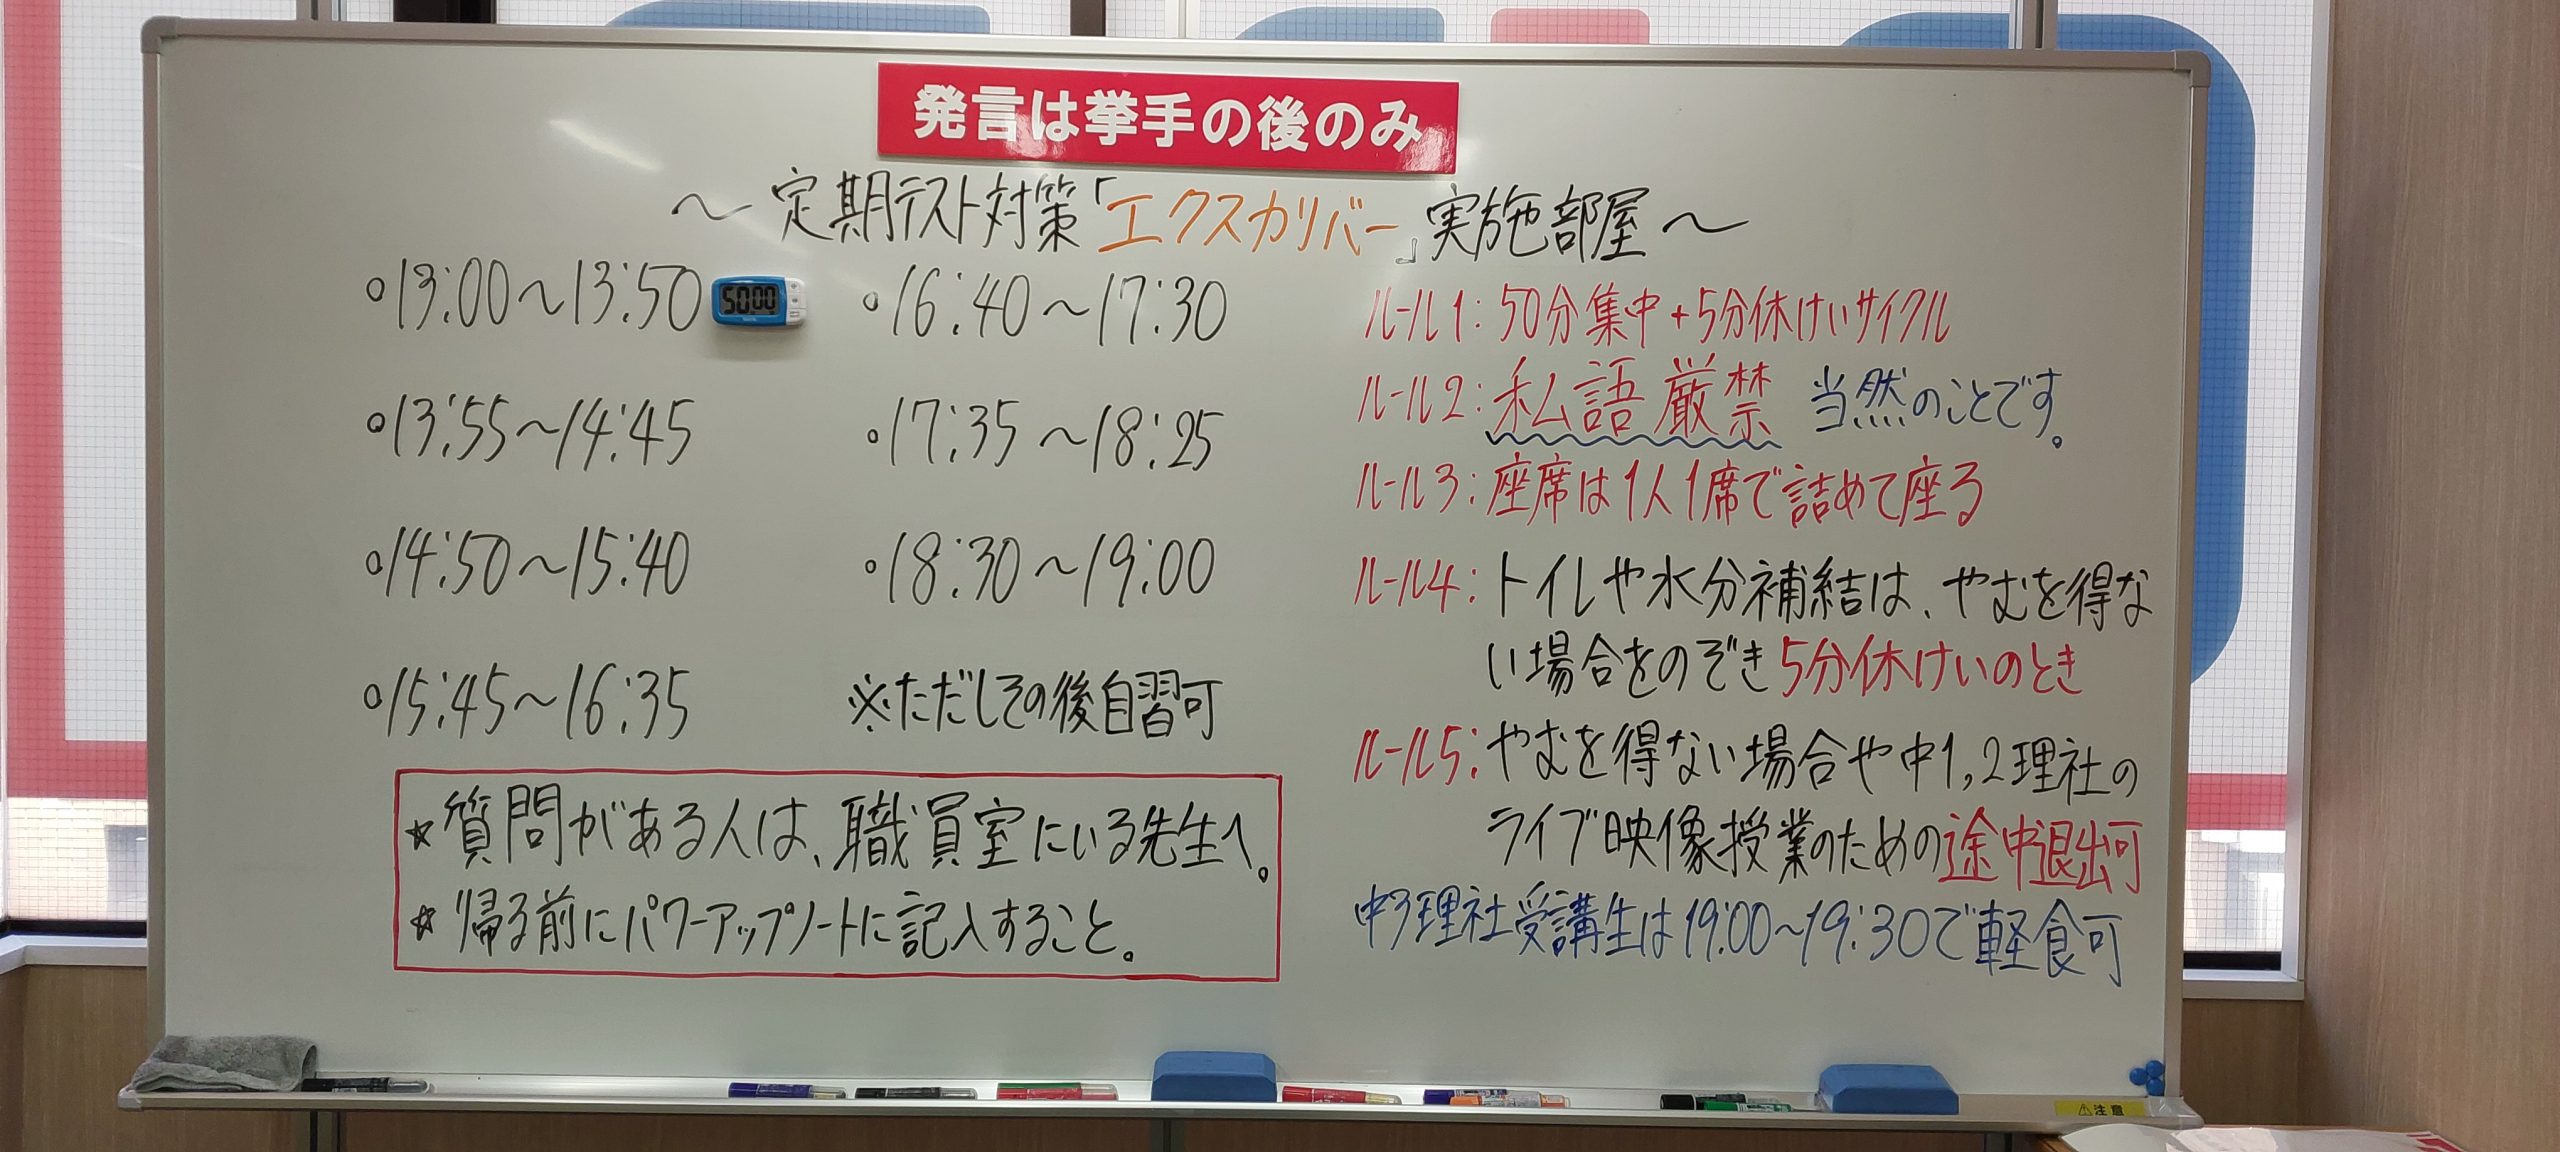 発言は挙手の後のみ
～定期テスト対策「エクスカリバー」実施部屋～
○13:00～13:50
50:00
○13:55～14:45
○14:50～15:40
○15:45～16:35
○16:40～17:30
○17:35～18:25
○18:30～19:00
※ただしその後自習可
☆質問がある人は、職員室にいる先生へ。
☆帰る前にパワーアップノートに記入すること。
ルール1:50分集中+5分休けいサイクル
ルール2:私語厳禁 当然のことです。
ルール3:座席は1人1席で詰めて座る
ルール4:トイレや水分補給は、やむを得な
い場合をのぞき5分休けいのとき
ルール5:やむを得ない場合や中1,2理社の
ライブ映像授業のための途中退出可
中3理社受講生は19:00～19:30で軽食可
注意